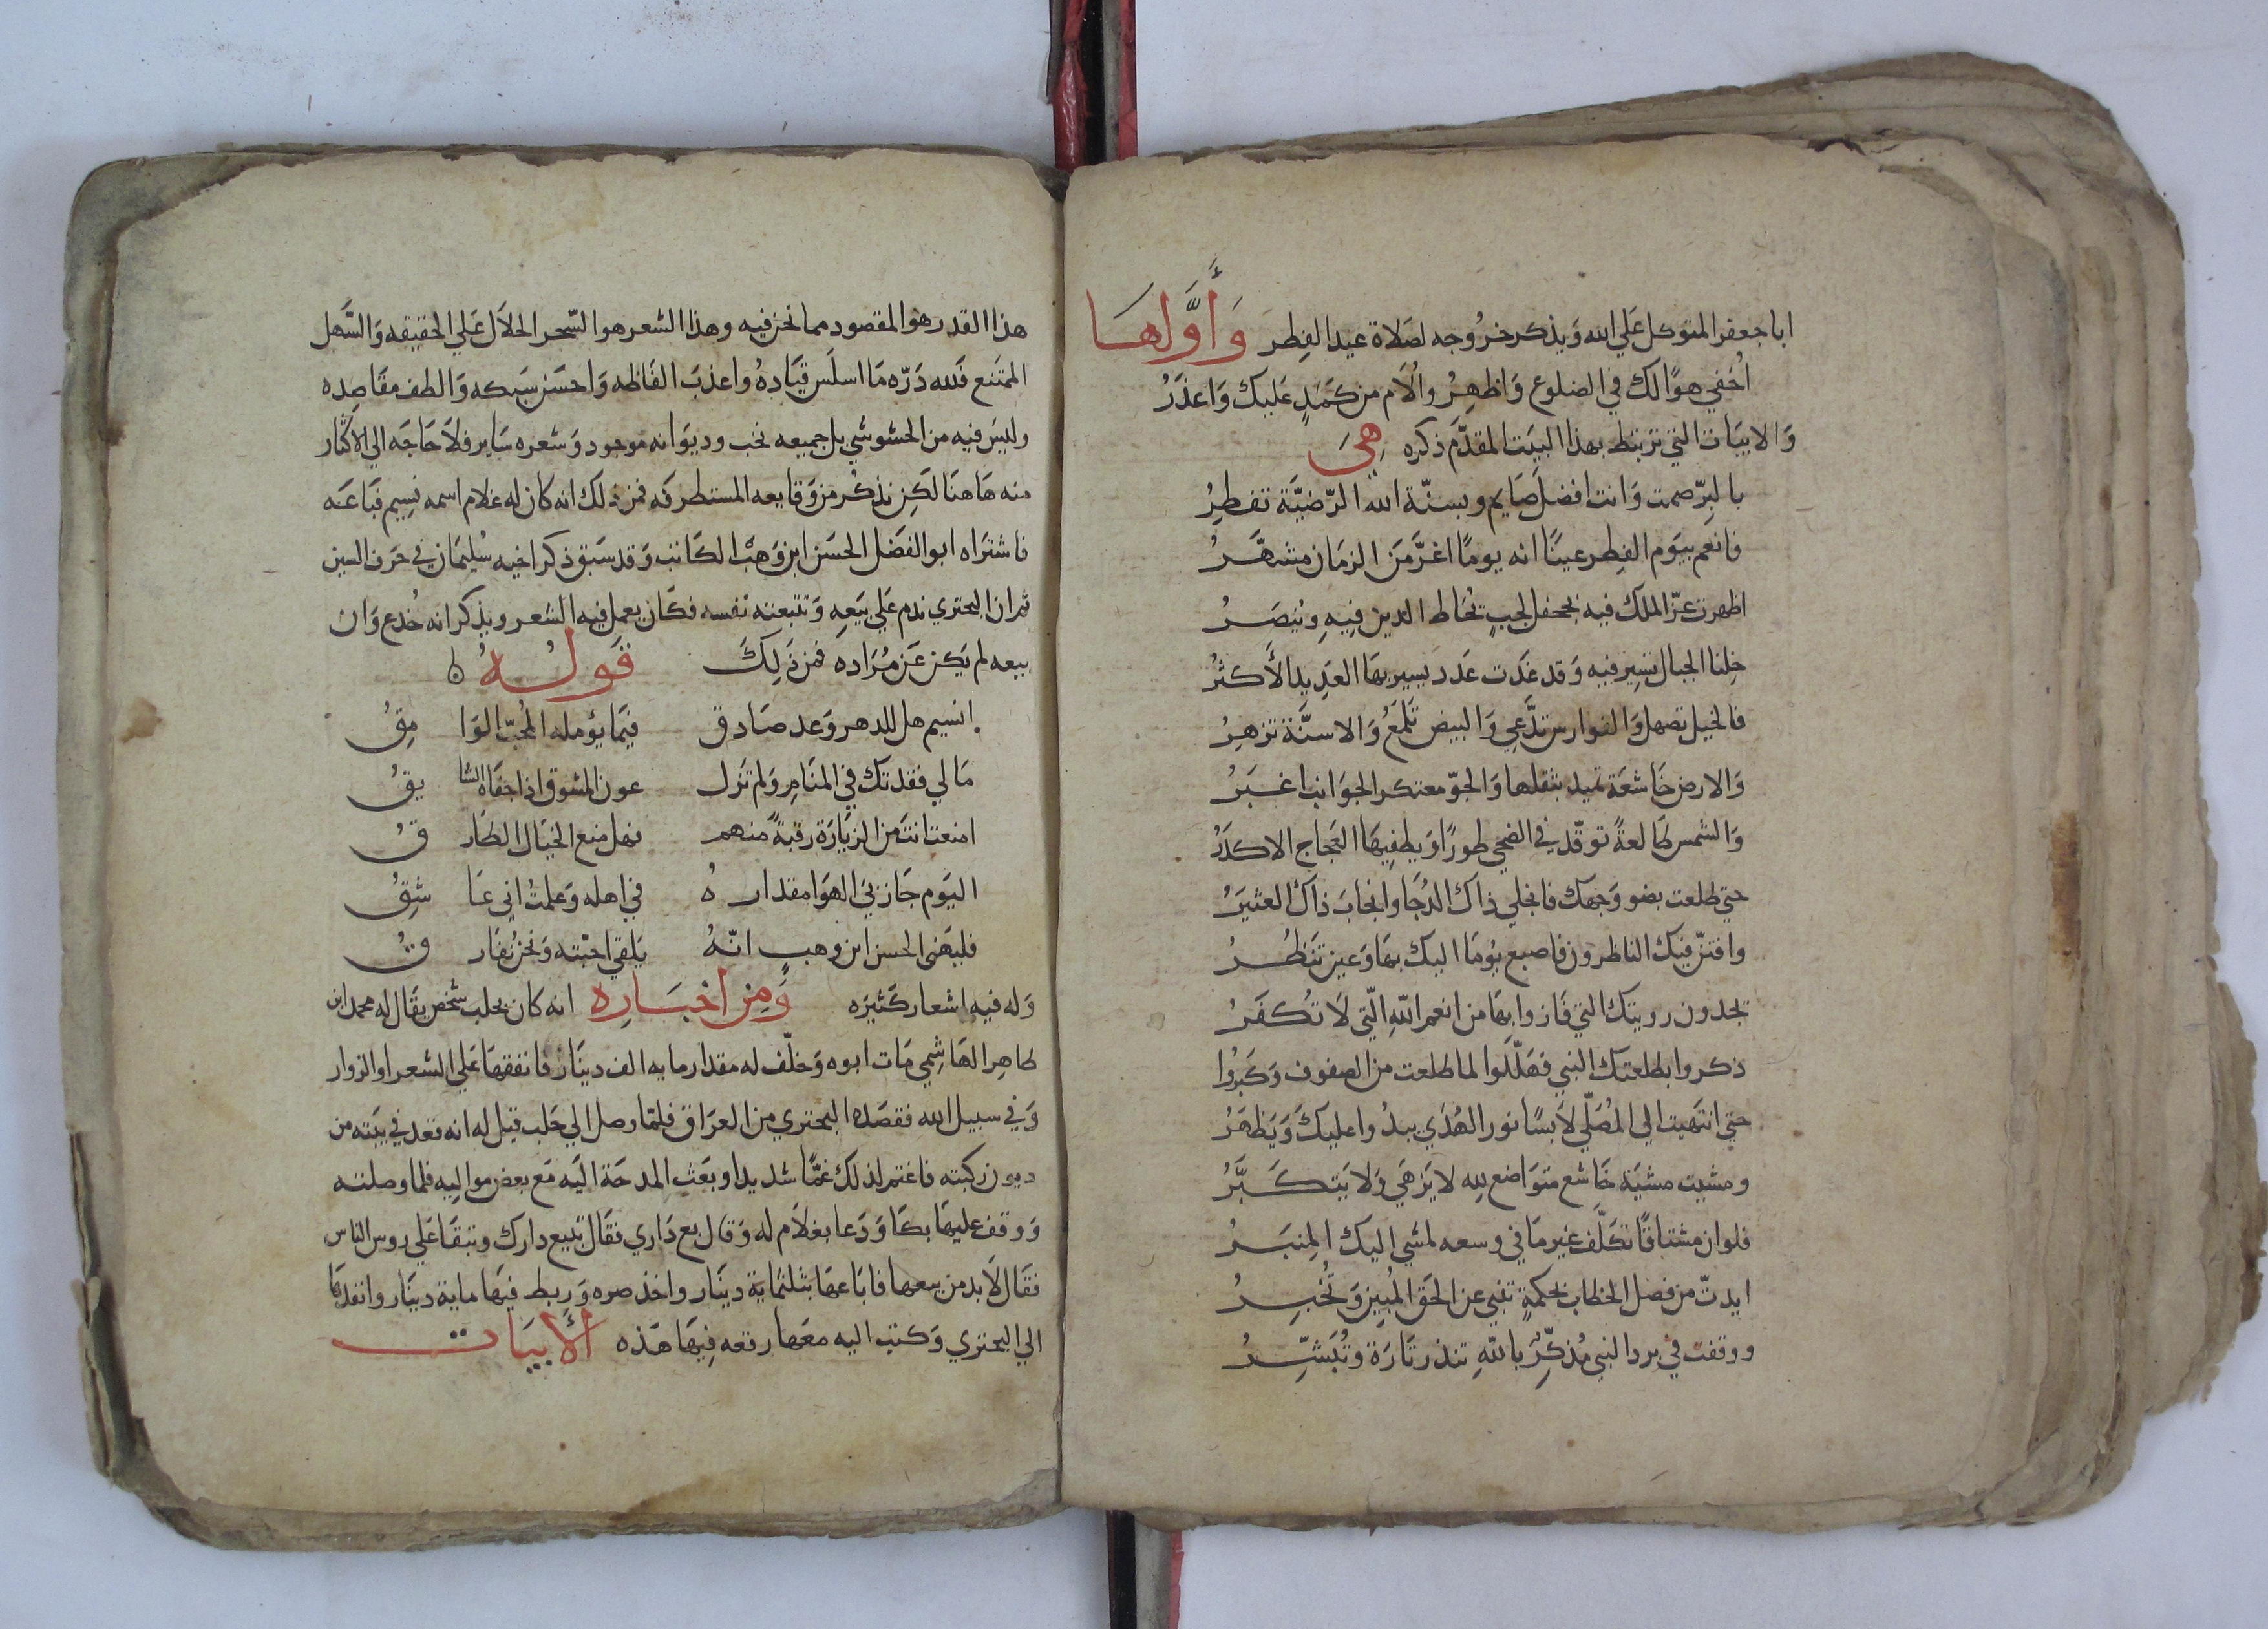 ابا جعفر المتوكل عَلي الله وَيذكر خرُوجه لصَلاة عيد الفِطر وَأوَّلهَا
اُخفي هوًا لك في الضلوع وَاظهِرُ والُام من كَمَدٍ عَليك وَاعذَرُ
وَالابيَات التي ترتبط بهذا البيَت المقدَّم ذكره هِيَ
بالبِرّ صمت وَانت افضل صَايم وبسنّة الله الرّضيَّة تفطِرُ
فانعم بيَوم الفِطر عينًا انه يومًا اغرَّ مَنَ الزمَان مشهَّرُ
اظهرت عزّ الملك فيه بجحفل لجبٍ تُحَاط الدين فِيهِ ويُنصَرُ
خِلنا الجبال تسِير فيه وَقد غَدَت عَدد يسير بهَا العَدِيد الأكثرُ
فالخيل تصهل وَالفوارس تدَّعِي وَالبيض تَلمَعُ وَالاسنَّة تزهِرُ
وَالارض خَاشعَة تميد بثقلها وَالجوّ معتكر الجوَانب اغبَرُ
وَالشمس طَالعةً توقّد في الضحي طورًا وَيطفِيهَا العَجاج الاكدَرُ
حتي طلعت بضو وَجهك فانجلي ذاك الدُجَا وانجابَ ذاك العثيَرُ
وافتنّ فيك الناظرون فاصبع يُومَا اليك بهَا وَعين تنَظُرُ
يجدون رويتك التي فَازوا بهَا من انعم اللهِ الّتي لاَ تُكفَرُ
ذكروا بطلعتك النبي فهَلّلَوا لما طلعت من الصفوف وَكبرُوا
حتي انتَهيت الي المُصَلّي لاَبسًا نور الهُدَي يبدُوا عليكَ وَيَظهَرُ
ومشيت مشيَة خَاشع متوَاضع لِله لا يَزهَي وَلا يَتكَبَّرُ
فلوان مشتاقًا تكَلّف غير مَا في وسعه لمشي اليك المِنبَرُ
ايدتّ من فصل الخطاب بحكمةٍ تنبي عن الحَق المُبِين وَتُخبِرُ
ووقفت في برد النبي مُذكّرِ باللهِ تنذر تَارَة وتُبَشّرُ
هذا القدر هو المقصود مما نحن فيه وهذا الشعر هو السّحر الحلاَل عَلي الحقيقه وَالسَّهل
الممَتنع فَلله دَرّه مَا اسلَس قيَادهُ واعذبَ الفَاظه وَاحسَن سَبكه وَالطف مقَاصِده
وليسَ فيه من الحشو شي بل جميعه نخب وديوَانه موجود وَشعره سَاير فلاَ حَاجَه الي الاكثار
منه هَاهنَا لَكِن نذكُر من وَقايعه المستطرفَه فمن ذلك انه كان له غلام اسمه نسِيم فبَاعَه
فاشترَاه ابو الفضَل الحسَن ابن وَهبْ الكَاتب وَقد سَبق ذكر اخيه سُليمَان في حَرف السين
ثم ان البحتري ندم عَلي بيَعهِ وَتتبعته نفسه فكَان يعمل فيه الشعر ويذكر انه خُدع وَان
بيعه لم يَكن عَن مُرَاده فمن ذَلِكَ قَولهُ
انسيم هل للدهر وَعد صَادق فيمَا يؤمله المُحبّ الوَامِقُ
مَالي فقدتك في المنَامِ وَلم تزَل عون المشوق اذا جفَاه الشايقُ
امنعت انتَ من الزيَارَة رقبةً منهم فهل منع الخيَال الطَارقُ
اليَوم جَاز بيَ الهوَا مقدارهُ في اهله وَعلمتُ اني عَاشِقُ
فليَهَني الحسن ابن وهب انّهُ يَلقي احبّته وَنحنُ نفَارقُ
وَله فيه اشعار كَثيرَه وَمِن اخبَارِه انه كان بحلب شخص يقَال له محمد ابن
طاهِر الهَاشِمي مَات ابوه وَخلّف له مقدار مايه الف دينَار فانفقهَا عَلي الشعرا والزوار
وَفي سبيل الله فقصَده البحتري من العرَاق فلمّا وصل الي حَلب قيل له انه قعد في بيَته من
ديون رَكبته فاغتم لذلك غمًّا شديدا وبعَث المدحَة اليَه مَع بعض موَاليِه فلما وصلته
وَوقف عليهَا بكَا وَدَعا بغلاَم له وَقال بع دَاري فقَال تبيع دارك وتبقَا عَلي روس الناس
فقَال لاَبد من بيعها فابَاعهَا بثلثمَاية دينَار واخذ صره وَربط فيهَا ماية دينَار وانفدهَا
الي البحتري وَكتب اليه معَها رقعه فِيهَا هَذه الأبيَات